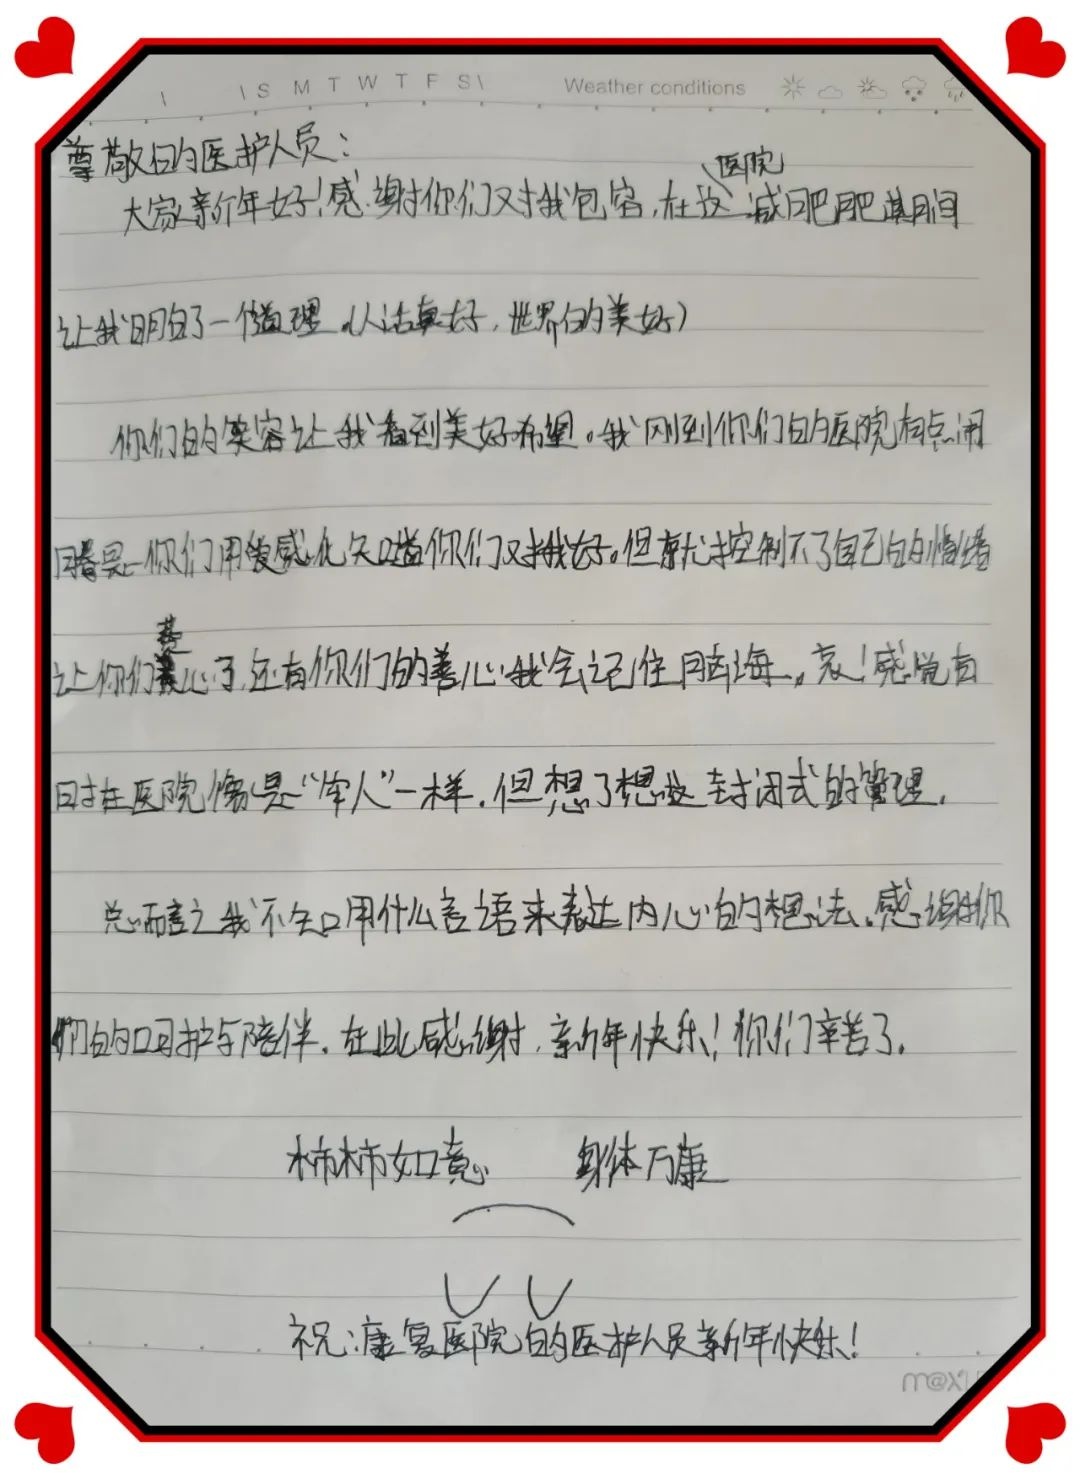 S M T W T F S
Weather conditions
尊敬的医护人员：
医院
大家新年好！感谢你们对我包容，在这减肥肥期间
让我明白了一个道理。（人活真好，世界的美好）
你们的笑容让我看到美好希望。我刚到你们的医院有点闹
但是你们用爱感化知道你们对我好。但就控制不了自己的情绪
让你们心了，还有你们的善心我会记住脑海。哀！感觉有
时在医院像是“牢人”一样。但想了想这封闭式的管理。
总而言之我不知用什么言语来表达内心的想法。感谢你
们的呵护与陪伴。在此感谢，新年快乐！你们辛苦了。
柿柿如意 身体万康
祝：康复医院的医护人员新年快乐！